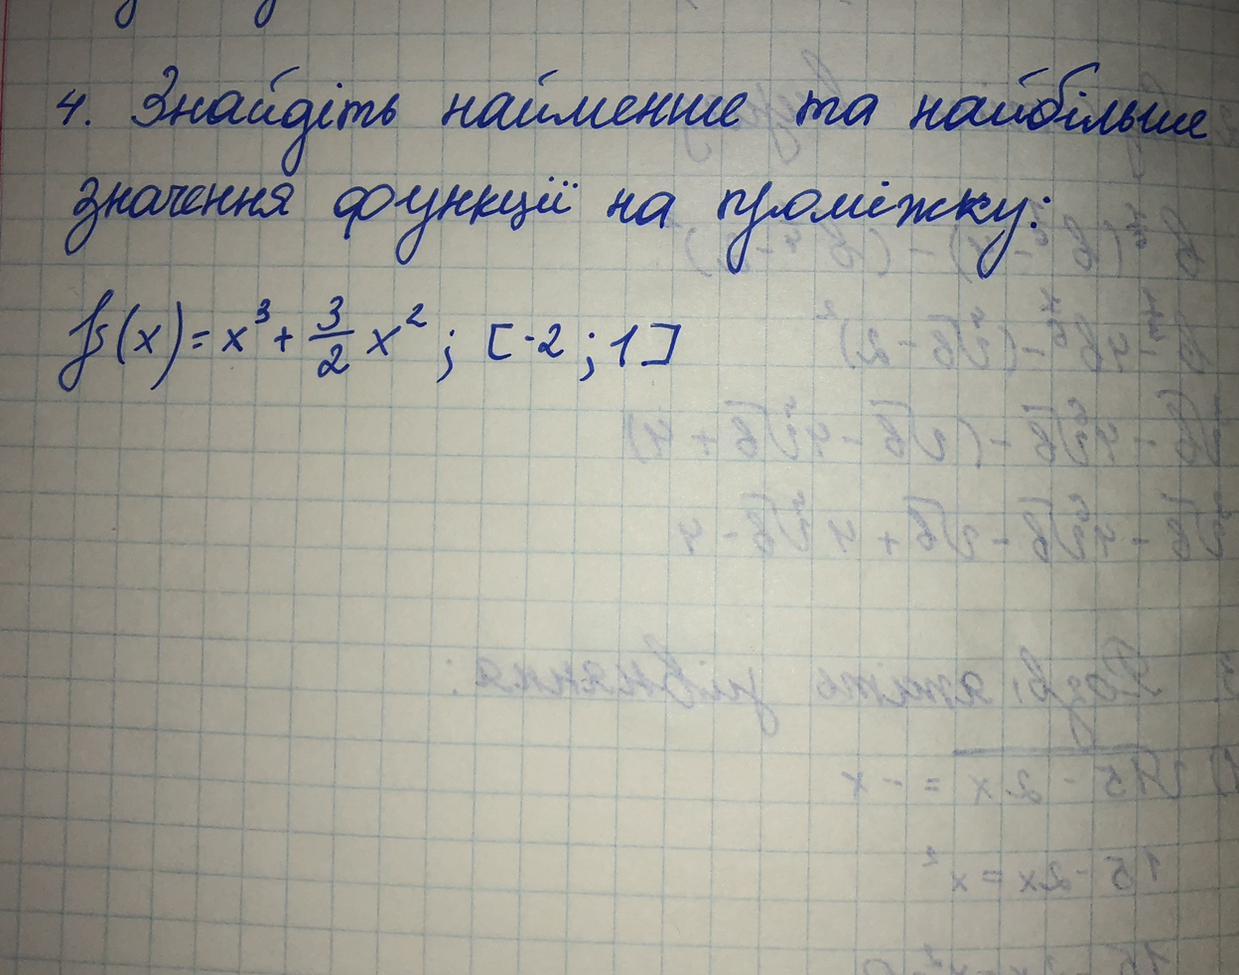 4. Знайдіть найменше та найбільше
значення функції на проміжку:
f(x) = x³ + 3/2 x² ; [-2 ; 1]